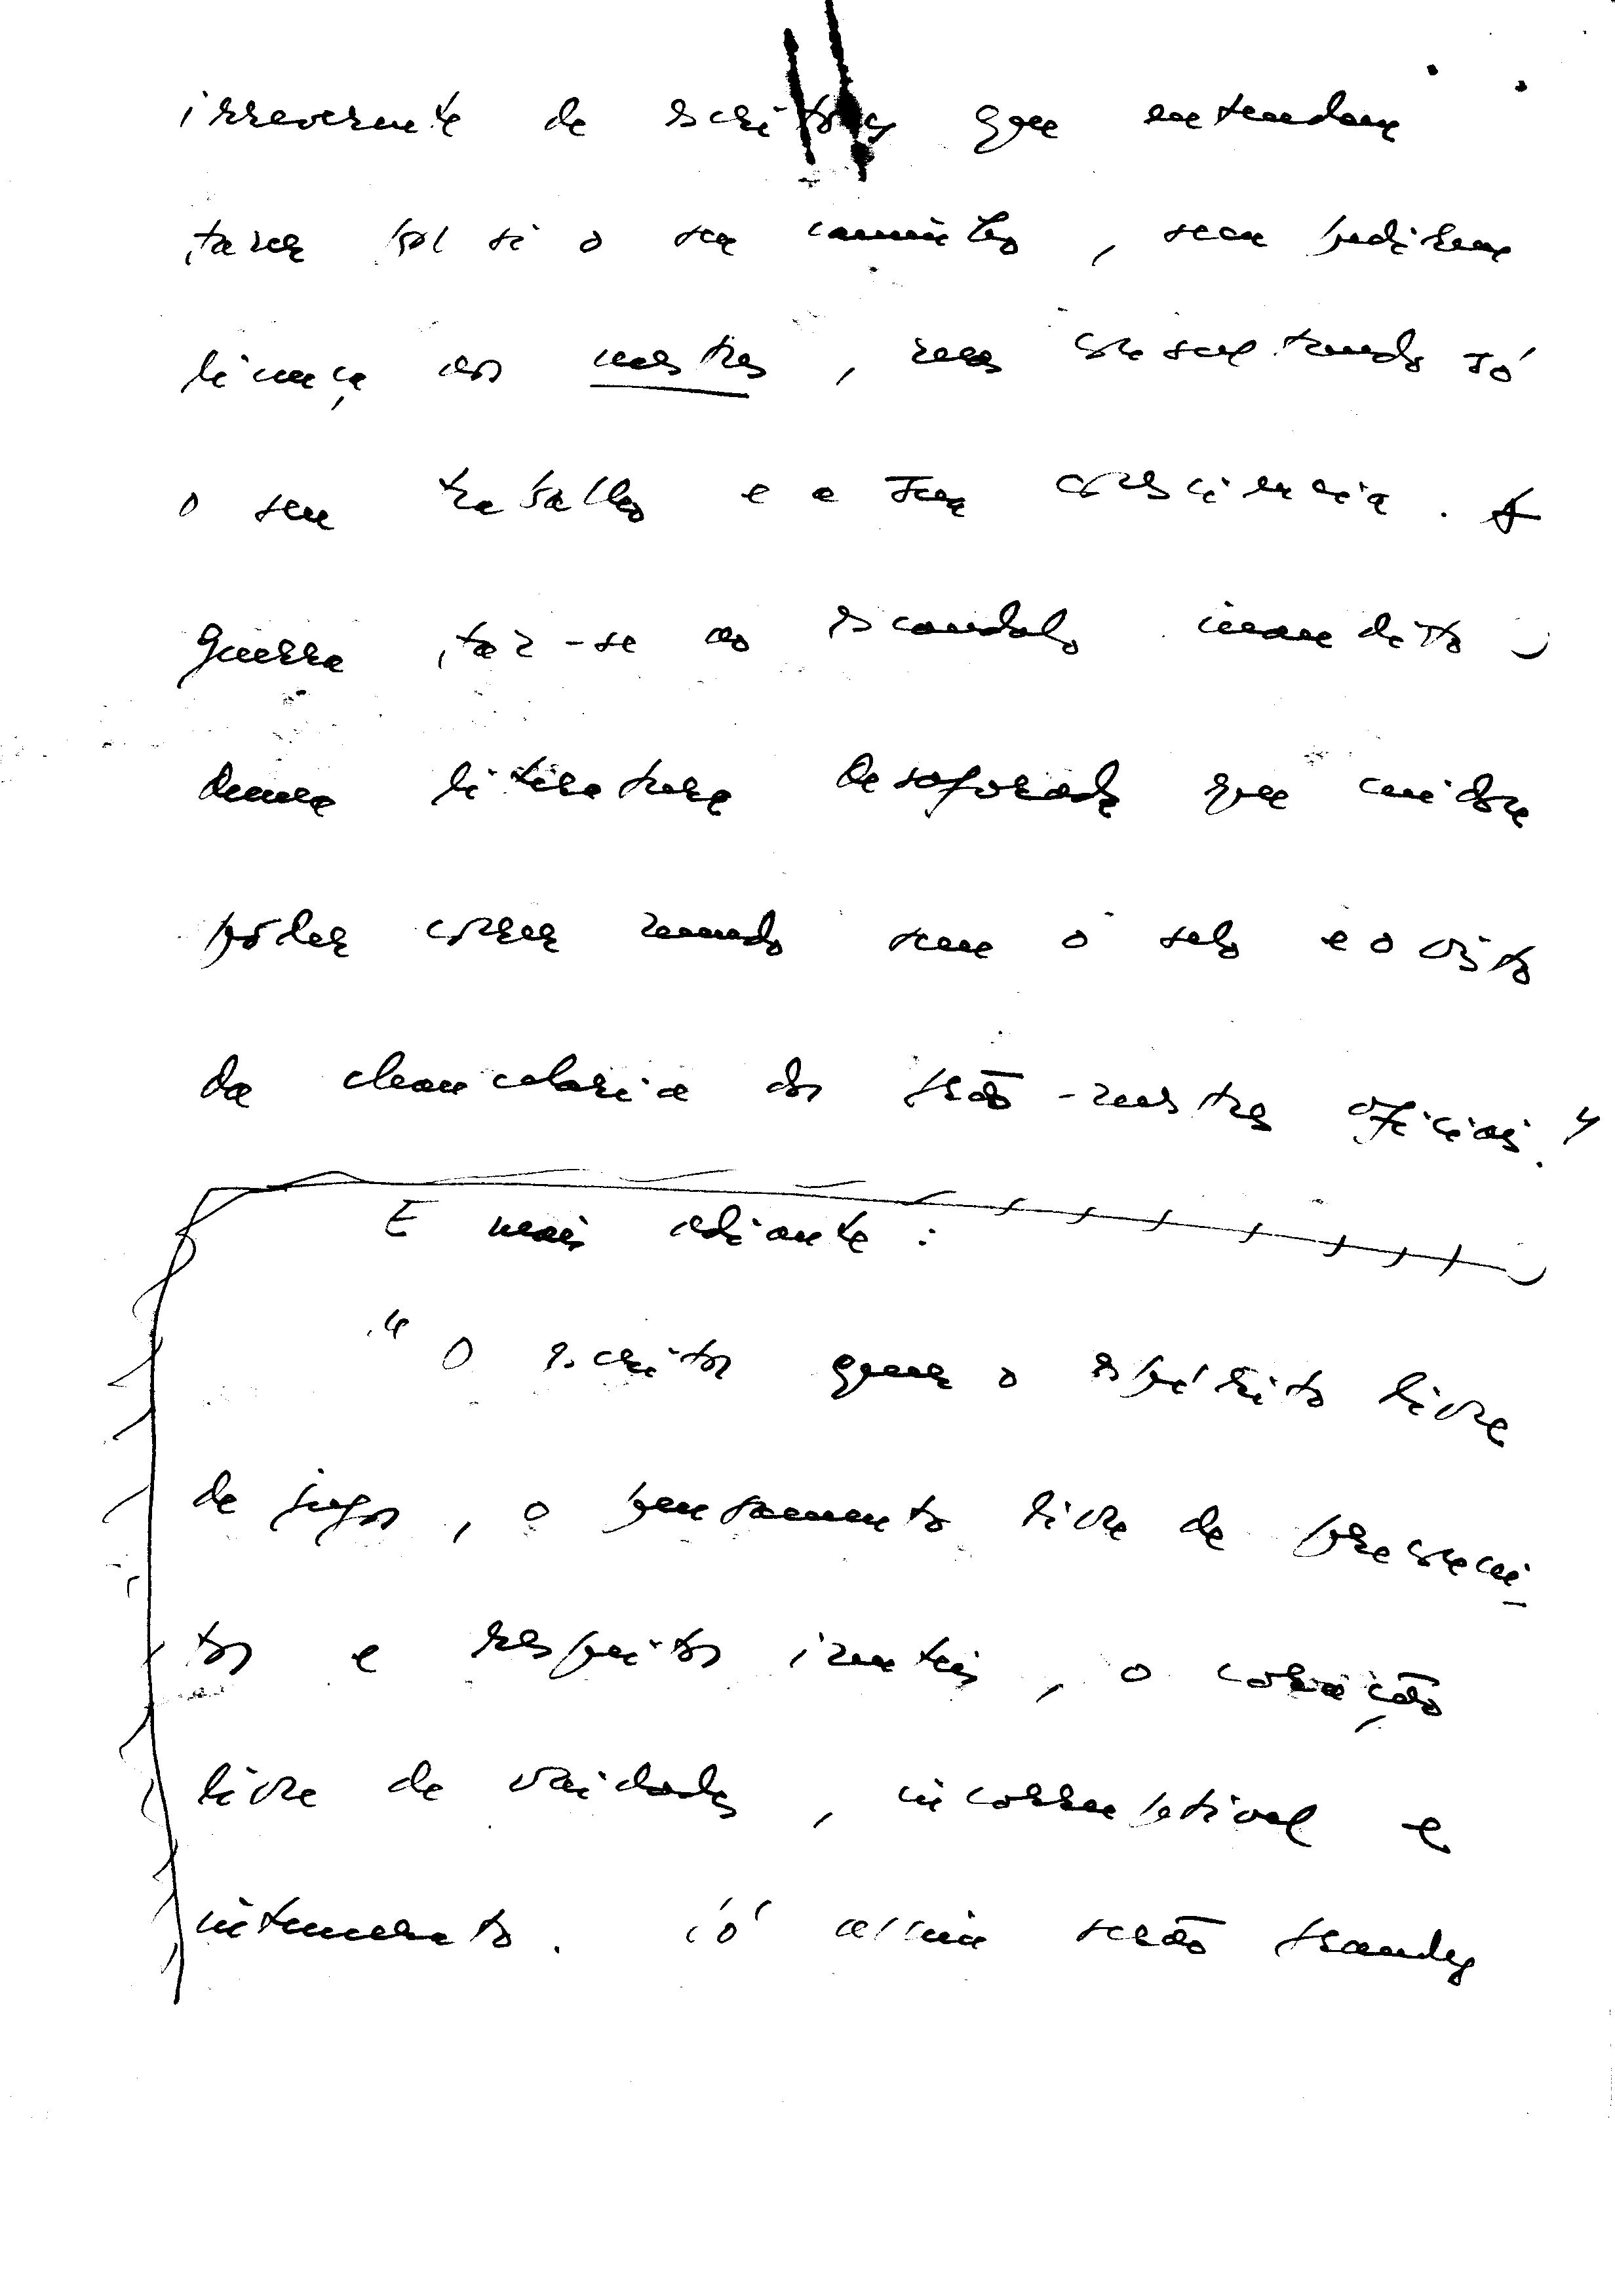 irreverente de escritores que entendam
fazer por si o seu caminho, sem pedirem
licença aos mestres, mas consultando só
o seu trabalho e a sua consciencia. A
guerra faz-se ao escandalo inaudito
duma literatura desaforada que cuidou
poder correr mundo sem o selo e o visto
da chancelaria dos grão-mestres oficiais."
E mais adiante:
"O escritor quer o espírito livre
de jugos, o pensamento livre de preconcei-
tos e respeitos inuteis, o coração
livre de vaidades, incorruptivel e
intemerato. Só assim serão grandes